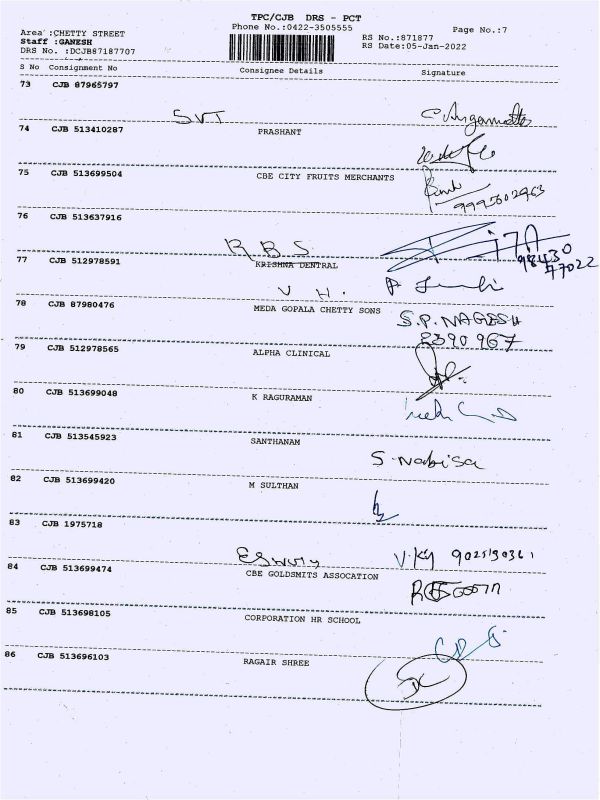 TPC/CJB DRS - PCT
Phone No.:0422-3505555
Page No.:7
Area :CHETTY STREET
Staff :GANESH
DRS No. :DCJB87187707
RS No.:871877
RS Date:05-Jan-2022
S No Consignment No Consignee Details Signature
73 CJB 87965797
SVT
74 CJB 513410287 PRASHANT
75 CJB 513699504 CBE CITY FRUITS MERCHANTS
9995602963
76 CJB 513637916
RBS
98430
77022
77 CJB 512978591 KRISHNA DENTRAL
V H.
78 CJB 87980476 MEDA GOPALA CHETTY SONS
S.P. NAGESH
2390967
79 CJB 512978565 ALPHA CLINICAL
80 CJB 513699048 K RAGURAMAN
81 CJB 513545923 SANTHANAM
S. Nabisa
82 CJB 513699420 M SULTHAN
83 CJB 1975718
84 CJB 513699474 CBE GOLDSMITS ASSOCATION
85 CJB 513698105 CORPORATION HR SCHOOL
86 CJB 513696103 RAGAIR SHREE